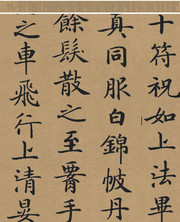 十符祝如上法畢
真同服白錦帔丹
餘髮散之至𦝫手
之車飛行上清晏